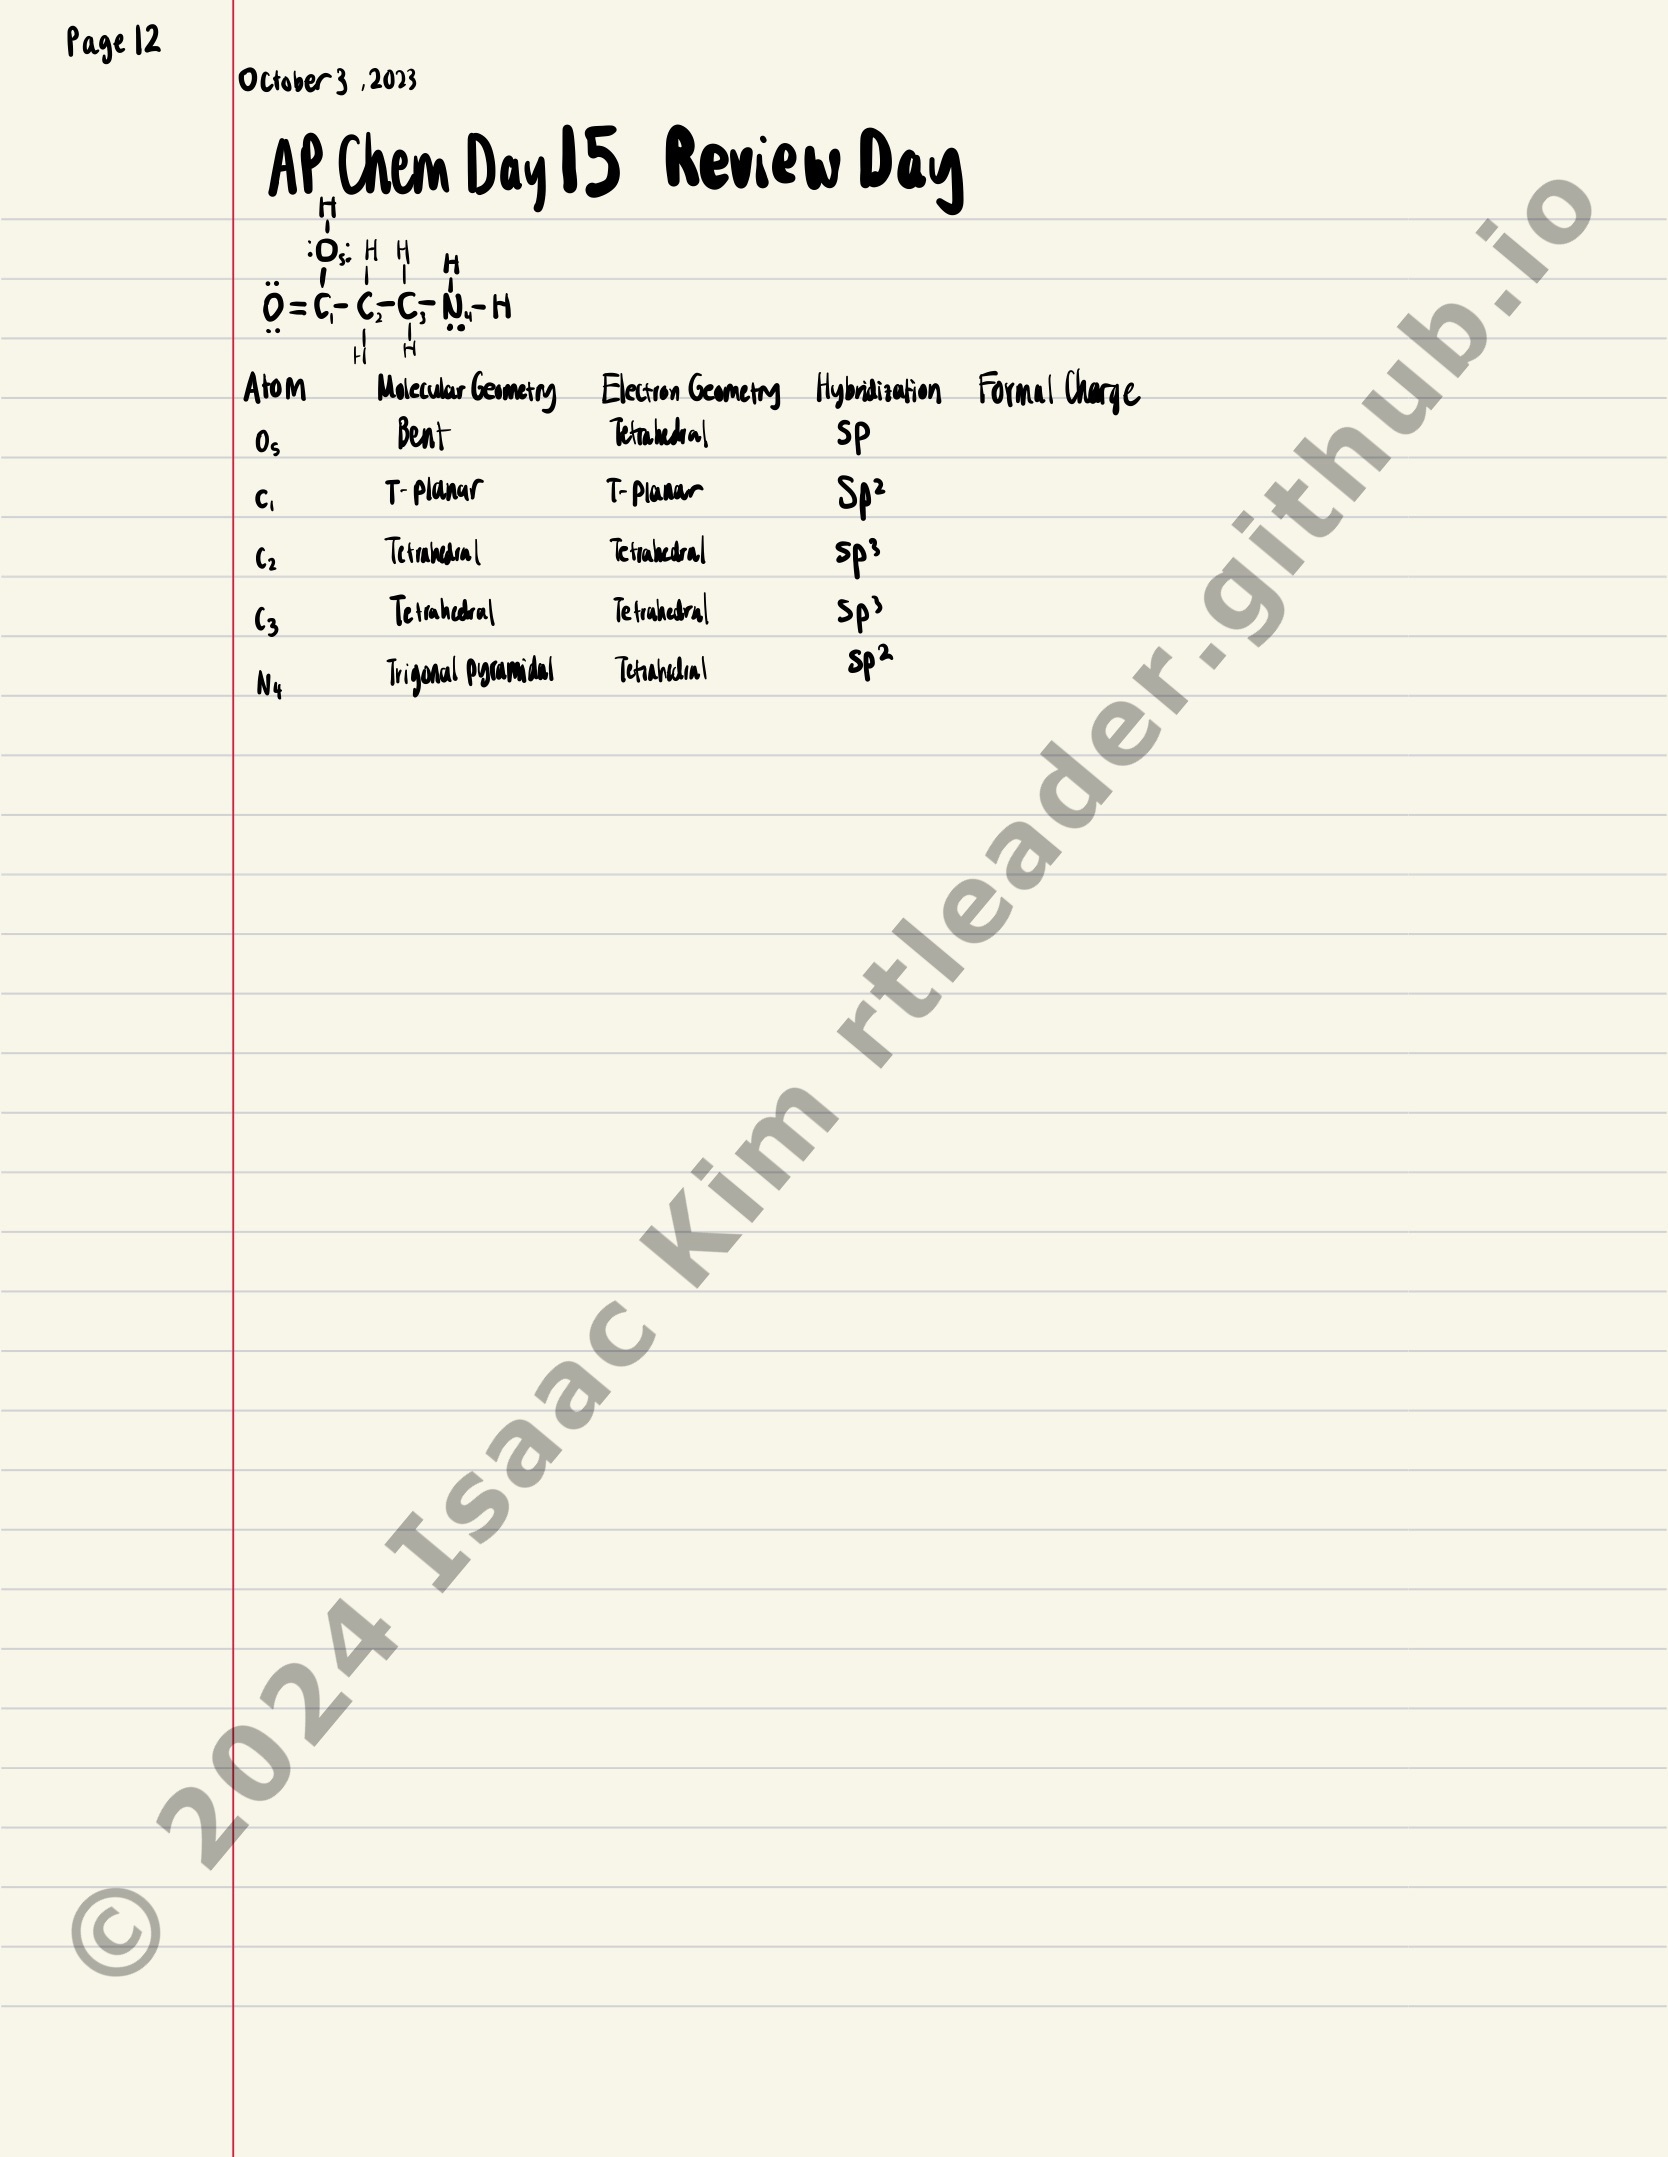 Page 12
October 3, 2023
AP Chem Day 15 Review Day
H
:O5: H H H
O=C1-C2-C3-N4-H
H H
Atom Molecular Geometry Electron Geometry Hybridization Formal Charge
O5 Bent Tetrahedral Sp
C1 T-planar T-planar Sp²
C2 Tetrahedral Tetrahedral Sp³
C3 Tetrahedral Tetrahedral Sp³
N4 Trigonal pyramidal Tetrahedral Sp²
© 2024 Isaac Kim rtleader.github.io